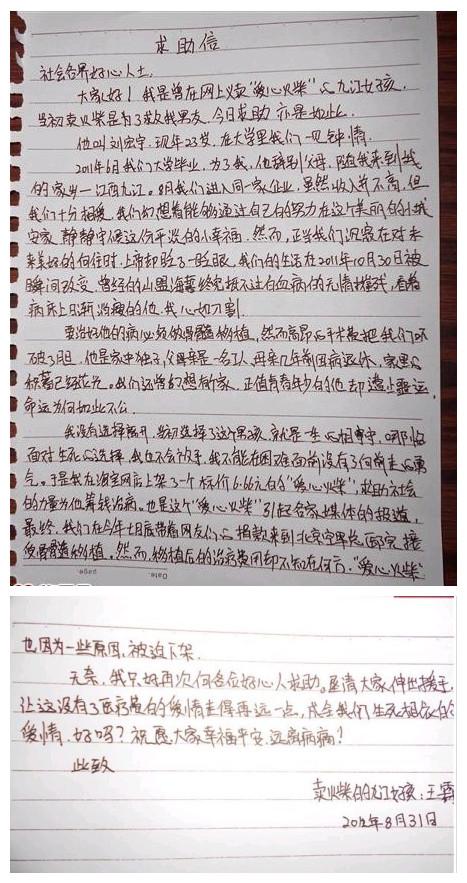 求助信
社会各界好心人士
大家好！我是曾在网上义卖“爱心火柴”的九江女孩，
当初卖火柴是为了救我男友，今日求助亦是如此。
他叫刘宏宇，现年23岁，在大学里我们一见钟情。
2011年6月我们大学毕业，为了我，他辞别父母，陪我来到我
的家乡—江西九江。8月我们进入同一家企业，虽然收入并不高，但
我们十分相爱，我们幻想着能够通过自己的努力在这个美丽的小城
安家，静静守候这份平淡的小幸福。然而，正当我们沉浸在对未
来美好的向往时，上帝却眨了一眨眼，我们的生活在2011年10月30日被
瞬间改变，曾经的山盟海誓终究抵不过白血病的无情摧残，看着
病床上日渐消瘦的他，我心如刀割。
要治好他的病必须做骨髓移植，然而高昂的手术费把我们吓
破了胆。他是家中独子，父亲是一名工人，母亲几年前因病退休，家里的
积蓄已经花光。我们还曾幻想有个家，正值青春年少的他却遭上噩运，
命运为何如此不公。
我没有选择离开，当初选择了这个男孩，就是一生的相守，哪怕
面对生死的选择，我也不会放手，我不能在困难面前没有了向前走的勇
气。于是我在淘宝网店上架了一个标价6.66元的“爱心火柴”，求助社会
的力量为他筹钱治病。也是这个“爱心火柴”引起各家媒体的报道，
最终，我们在今年七月底带着网友们的捐款来到北京空军总医院接
受骨髓移植。然而，移植后的治疗费用却不知在何方。“爱心火柴”
Date. page.
也因为一些原因，被迫下架。
无奈，我只好再次向各位好心人求助。恳请大家伸出援手，
让这没有了医疗费的爱情走得再远一点，成全我们生死相依的
爱情，好吗？祝愿大家幸福平安，远离病痛！
此致
卖火柴的九江女孩：王霞
2012年8月31日